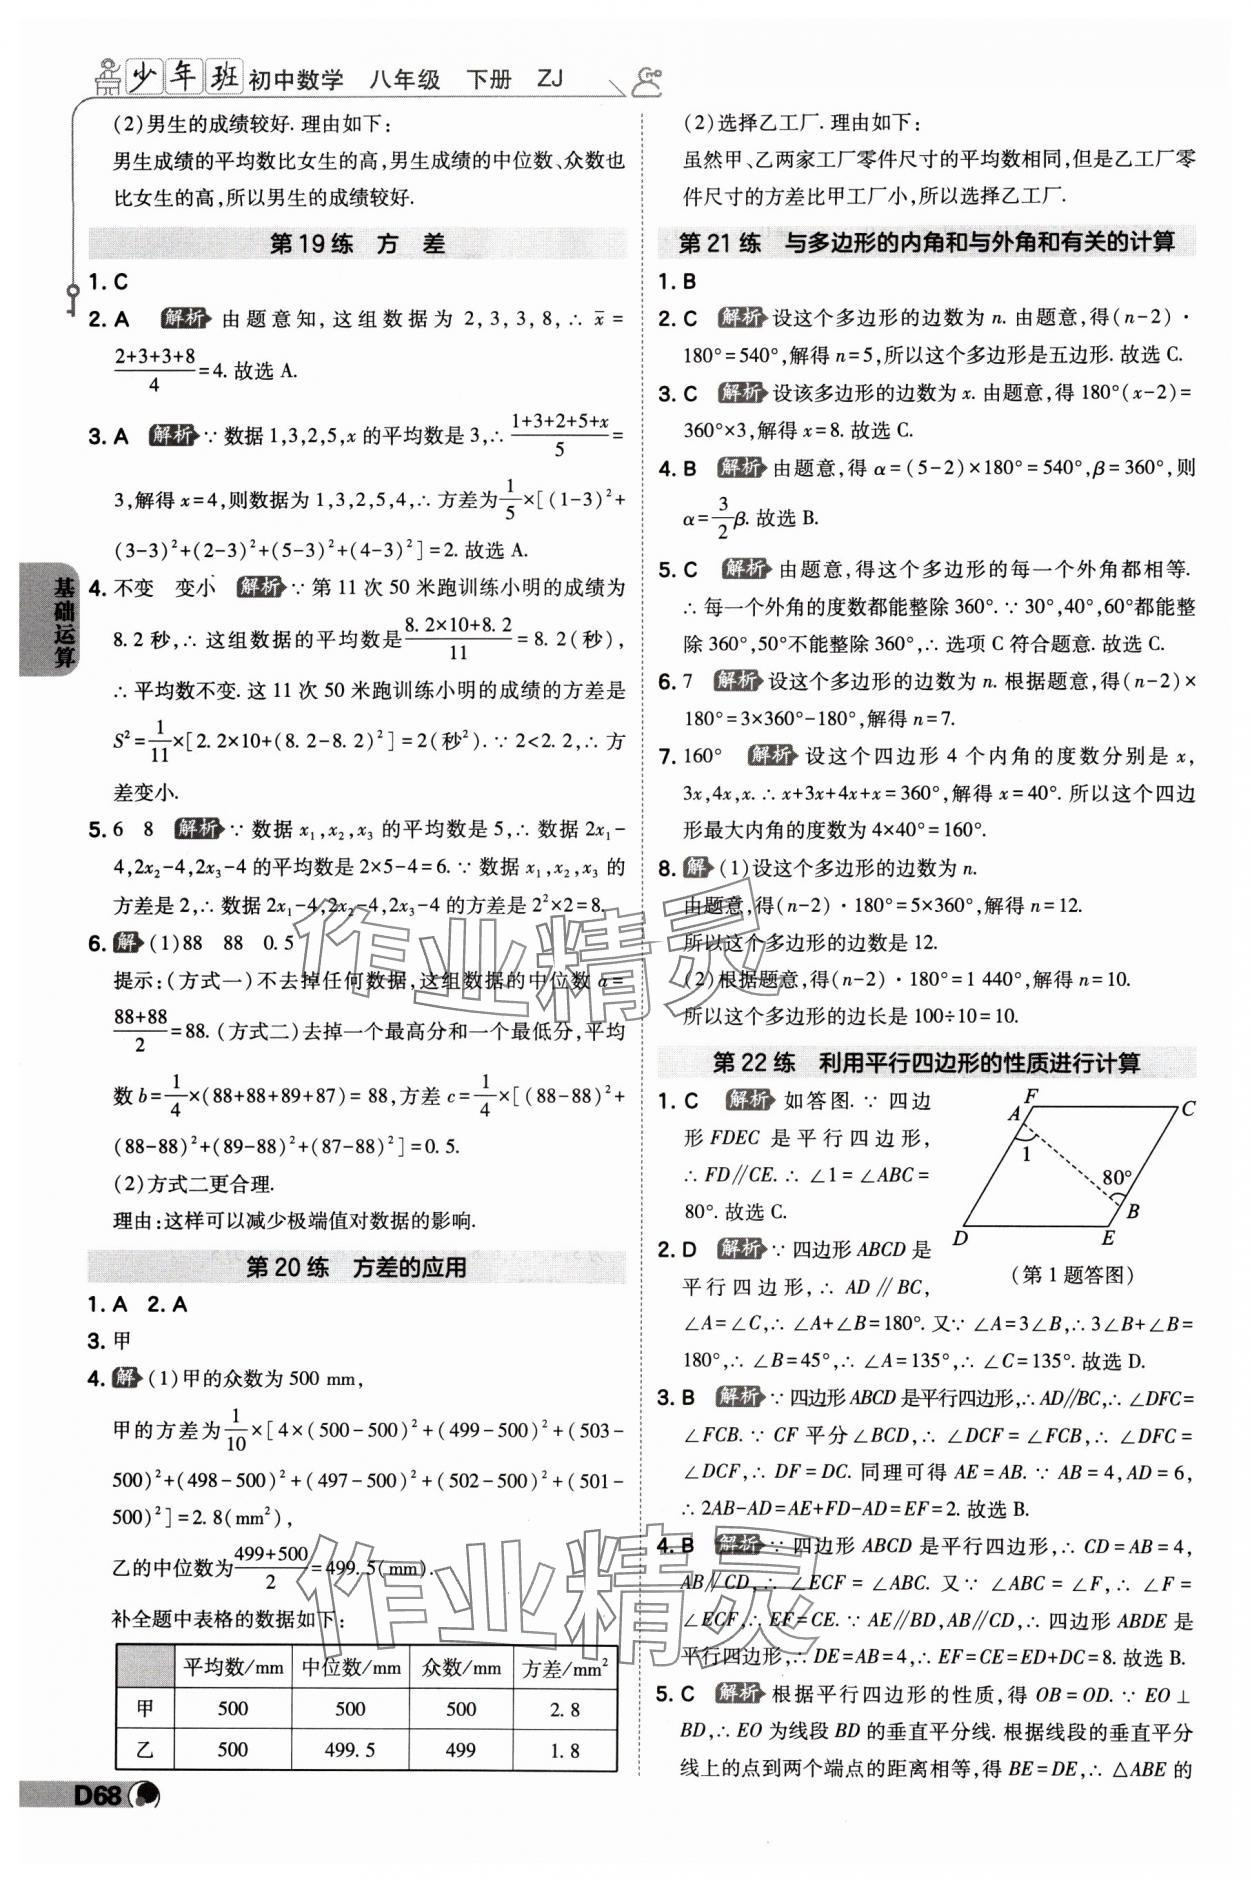 少年班 初中数学 八年级 下册 ZJ
(2)男生的成绩较好. 理由如下:
男生成绩的平均数比女生的高,男生成绩的中位数、众数也
比女生的高,所以男生的成绩较好.
第 19 练 方 差
1. C
2. A 解析 由题意知,这组数据为 2,3,3,8,∴ x̄ =
(2+3+3+8)/4=4. 故选 A.
3. A 解析 ∵ 数据 1,3,2,5,x 的平均数是 3,∴ (1+3+2+5+x)/5=
3,解得 x=4,则数据为 1,3,2,5,4,∴ 方差为1/5×[(1-3)²+
(3-3)²+(2-3)²+(5-3)²+(4-3)²]=2. 故选 A.
4. 不变 变小 解析 ∵ 第 11 次 50 米跑训练小明的成绩为
8. 2 秒,∴ 这组数据的平均数是(8. 2×10+8. 2)/11=8. 2(秒),
∴ 平均数不变. 这 11 次 50 米跑训练小明的成绩的方差是
S²=1/11×[2. 2×10+(8. 2-8. 2)²]=2(秒²). ∵ 2<2. 2,∴ 方
差变小.
5. 6 8 解析 ∵ 数据 x₁,x₂,x₃ 的平均数是 5,∴ 数据 2x₁-
4,2x₂-4,2x₃-4 的平均数是 2×5-4=6. ∵ 数据 x₁,x₂,x₃ 的
方差是 2,∴ 数据 2x₁-4,2x₂-4,2x₃-4 的方差是 2²×2=8.
6. 解 (1)88 88 0. 5
提示:(方式一)不去掉任何数据,这组数据的中位数 a=
(88+88)/2=88. (方式二)去掉一个最高分和一个最低分,平均
数 b=1/4×(88+88+89+87)= 88,方差 c=1/4×[(88-88)²+
(88-88)²+(89-88)²+(87-88)²]=0. 5.
(2)方式二更合理.
理由:这样可以减少极端值对数据的影响.
第 20 练 方差的应用
1. A 2. A
3. 甲
4. 解 (1)甲的众数为 500 mm,
甲的方差为1/10×[4×(500-500)²+(499-500)²+(503-
500)²+(498-500)²+(497-500)²+(502-500)²+(501-
500)²]=2. 8(mm²),
乙的中位数为(499+500)/2=499. 5(mm).
补全题中表格的数据如下:
平均数/mm 中位数/mm 众数/mm 方差/mm²
甲 500 500 500 2. 8
乙 500 499. 5 499 1. 8
基础运算
D68
(2)选择乙工厂. 理由如下:
虽然甲、乙两家工厂零件尺寸的平均数相同,但是乙工厂零
件尺寸的方差比甲工厂小,所以选择乙工厂.
第 21 练 与多边形的内角和与外角和有关的计算
1. B
2. C 解析 设这个多边形的边数为 n. 由题意,得(n-2)·
180°=540°,解得 n=5,所以这个多边形是五边形. 故选 C.
3. C 解析 设该多边形的边数为 x. 由题意,得 180°(x-2)=
360°×3,解得 x=8. 故选 C.
4. B 解析 由题意,得 α=(5-2)×180°=540°,β=360°,则
α=3/2β. 故选 B.
5. C 解析 由题意,得这个多边形的每一个外角都相等.
∴ 每一个外角的度数都能整除 360°. ∵ 30°,40°,60°都能整
除 360°,50°不能整除 360°,∴ 选项 C 符合题意. 故选 C.
6. 7 解析 设这个多边形的边数为 n. 根据题意,得(n-2)×
180°=3×360°-180°,解得 n=7.
7. 160° 解析 设这个四边形 4 个内角的度数分别是 x,
3x,4x,x. ∴ x+3x+4x+x=360°,解得 x=40°. 所以这个四边
形最大内角的度数为 4×40°=160°.
8. 解 (1)设这个多边形的边数为 n.
由题意,得(n-2)·180°=5×360°,解得 n=12.
所以这个多边形的边数是 12.
(2)根据题意,得(n-2)·180°=1 440°,解得 n=10.
所以这个多边形的边长是 100÷10=10.
第 22 练 利用平行四边形的性质进行计算
1. C 解析 如答图. ∵ 四边
形 FDEC 是平行四边形,
∴ FD∥CE. ∴ ∠1=∠ABC=
80°. 故选 C.
A F C 1 80° B D E
(第 1 题答图)
2. D 解析 ∵ 四边形 ABCD 是
平行四边形,∴ AD∥BC,
∠A=∠C,∴ ∠A+∠B=180°. 又∵ ∠A=3∠B,∴ 3∠B+∠B=
180°,∴ ∠B=45°,∴ ∠A=135°,∴ ∠C=135°. 故选 D.
3. B 解析 ∵ 四边形 ABCD 是平行四边形,∴ AD∥BC,∴ ∠DFC=
∠FCB. ∵ CF 平分∠BCD,∴ ∠DCF=∠FCB,∴ ∠DFC=
∠DCF,∴ DF=DC. 同理可得 AE=AB. ∵ AB=4,AD=6,
∴ 2AB-AD=AE+FD-AD=EF=2. 故选 B.
4. B 解析 ∵ 四边形 ABCD 是平行四边形,∴ CD=AB=4,
AB∥CD,∴ ∠ECF=∠ABC. 又∵ ∠ABC=∠F,∴ ∠F=
∠ECF,∴ EF=CE. ∵ AE∥BD,AB∥CD,∴ 四边形 ABDE 是
平行四边形,∴ DE=AB=4,∴ EF=CE=ED+DC=8. 故选 B.
5. C 解析 根据平行四边形的性质,得 OB=OD. ∵ EO⊥
BD,∴ EO 为线段 BD 的垂直平分线. 根据线段的垂直平分
线上的点到两个端点的距离相等,得 BE=DE,∴ △ABE 的
作业精灵
作业精灵